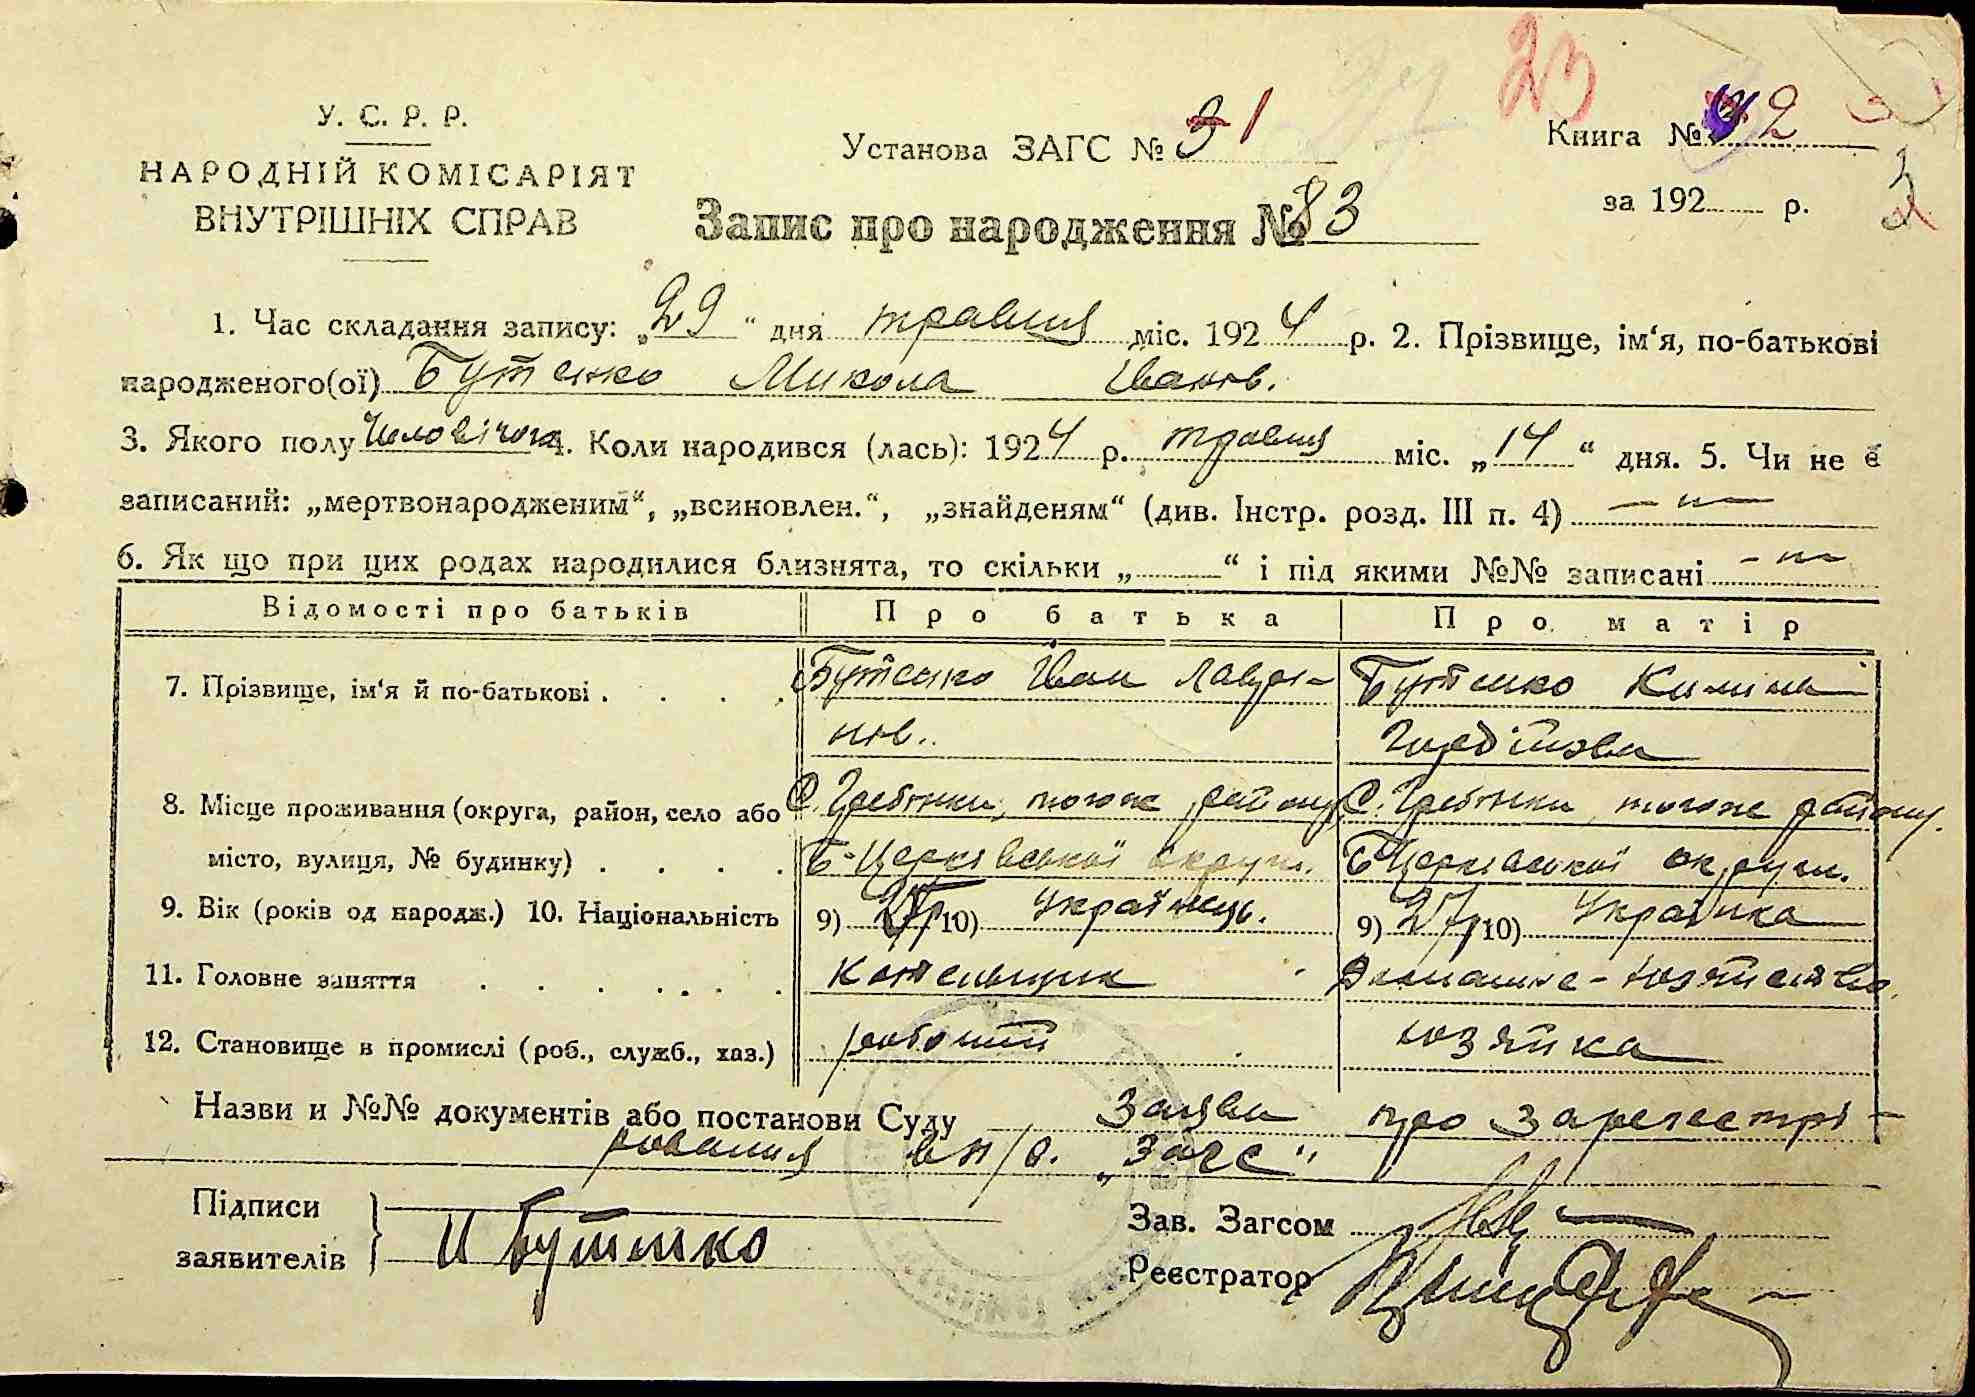 23
У. С. Р. Р.
НАРОДНІЙ КОМІСАРІЯТ
ВНУТРІШНІХ СПРАВ
Установа ЗАГС № 1
Книга № 2
за 192 р.
Запис про народження № 83
1. Час складання запису: „29“ дня травня міс. 1924 р. 2. Прізвище, ім‘я, по-батькові
народженого(ої) Бутенко Микола Іванов.
3. Якого полу Чоловічого 4. Коли народився (лась): 1924 р. травня міс. „14“ дня. 5. Чи не є
записаний: „мертвонародженим“, „всиновлен.“, „знайденям“ (див. Інстр. розд. III п. 4) – „ –
6. Як що при цих родах народилися близнята, то скільки „ “ і під якими №№ записані – „ –
Відомості про батьків Про батька Про матір
7. Прізвище, ім‘я й по-батькові . . . . Бутенко Іван Лавре- Бутенко
нов.. Гордіївна
8. Місце проживання (округа, район, село або С. Гребінки, тогож району С. Гребінки, тогоже району.
місто, вулиця, № будинку) . . . . Б-Церківської округи. Б-Церківської округи.
9. Вік (років од народж.) 10. Національність 9) 10) Українець. 9) 27 10) Українка
11. Головне заняття . . . . . . . Котельщик Домашнє-хозяйство.
12. Становище в промислі (роб., служб., хаз.) робочий хозяйка
Назви и №№ документів або постанови Суду Заява про зарегестрі-
рования в п/о. „Загс“
Підписи
заявителів И Бутенко
Зав. Загсом
Реєстратор